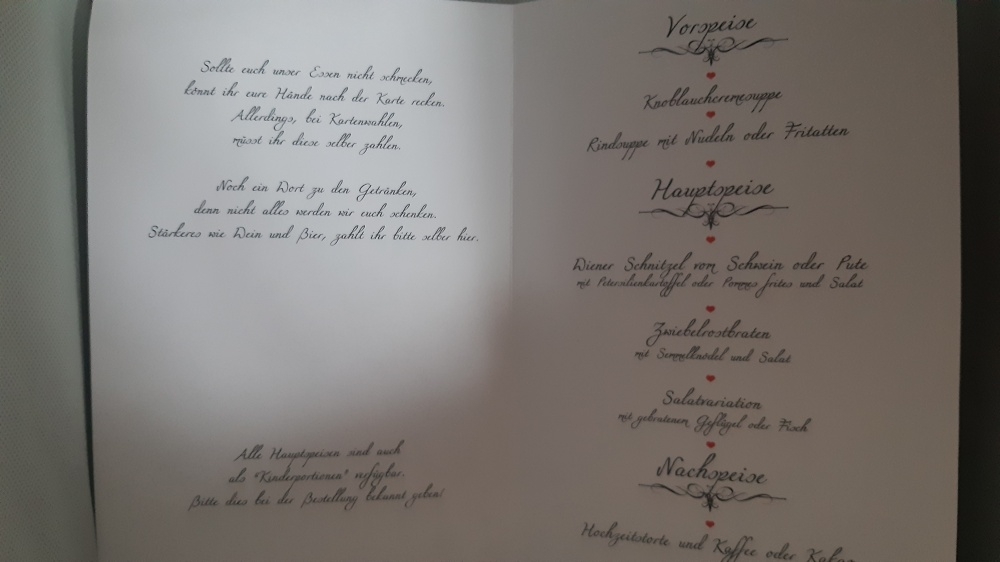 Sollte euch unser Essen nicht schmecken,
könnt ihr eure Hände nach der Karte recken.
Allerdings, bei Kartenwahlen,
müsst ihr diese selber zahlen.
Noch ein Wort zu den Getränken,
denn nicht alles werden wir euch schenken.
Stärkeres wie Wein und Bier, zahlt ihr bitte selber hier.
Alle Hauptspeisen sind auch
als "Kinderportionen" verfügbar.
Bitte dies bei der Bestellung bekannt geben!
Vorspeise
Knoblauchcremesuppe
Rindsuppe mit Nudeln oder Fritatten
Hauptspeise
Wiener Schnitzel vom Schwein oder Pute
mit Petersilienkartoffel oder Pommes frites und Salat
Zwiebelrostbraten
mit Semmelknödel und Salat
Salatvariation
mit gebratenem Geflügel oder Fisch
Nachspeise
Hochzeitstorte und Kaffee oder Kakao